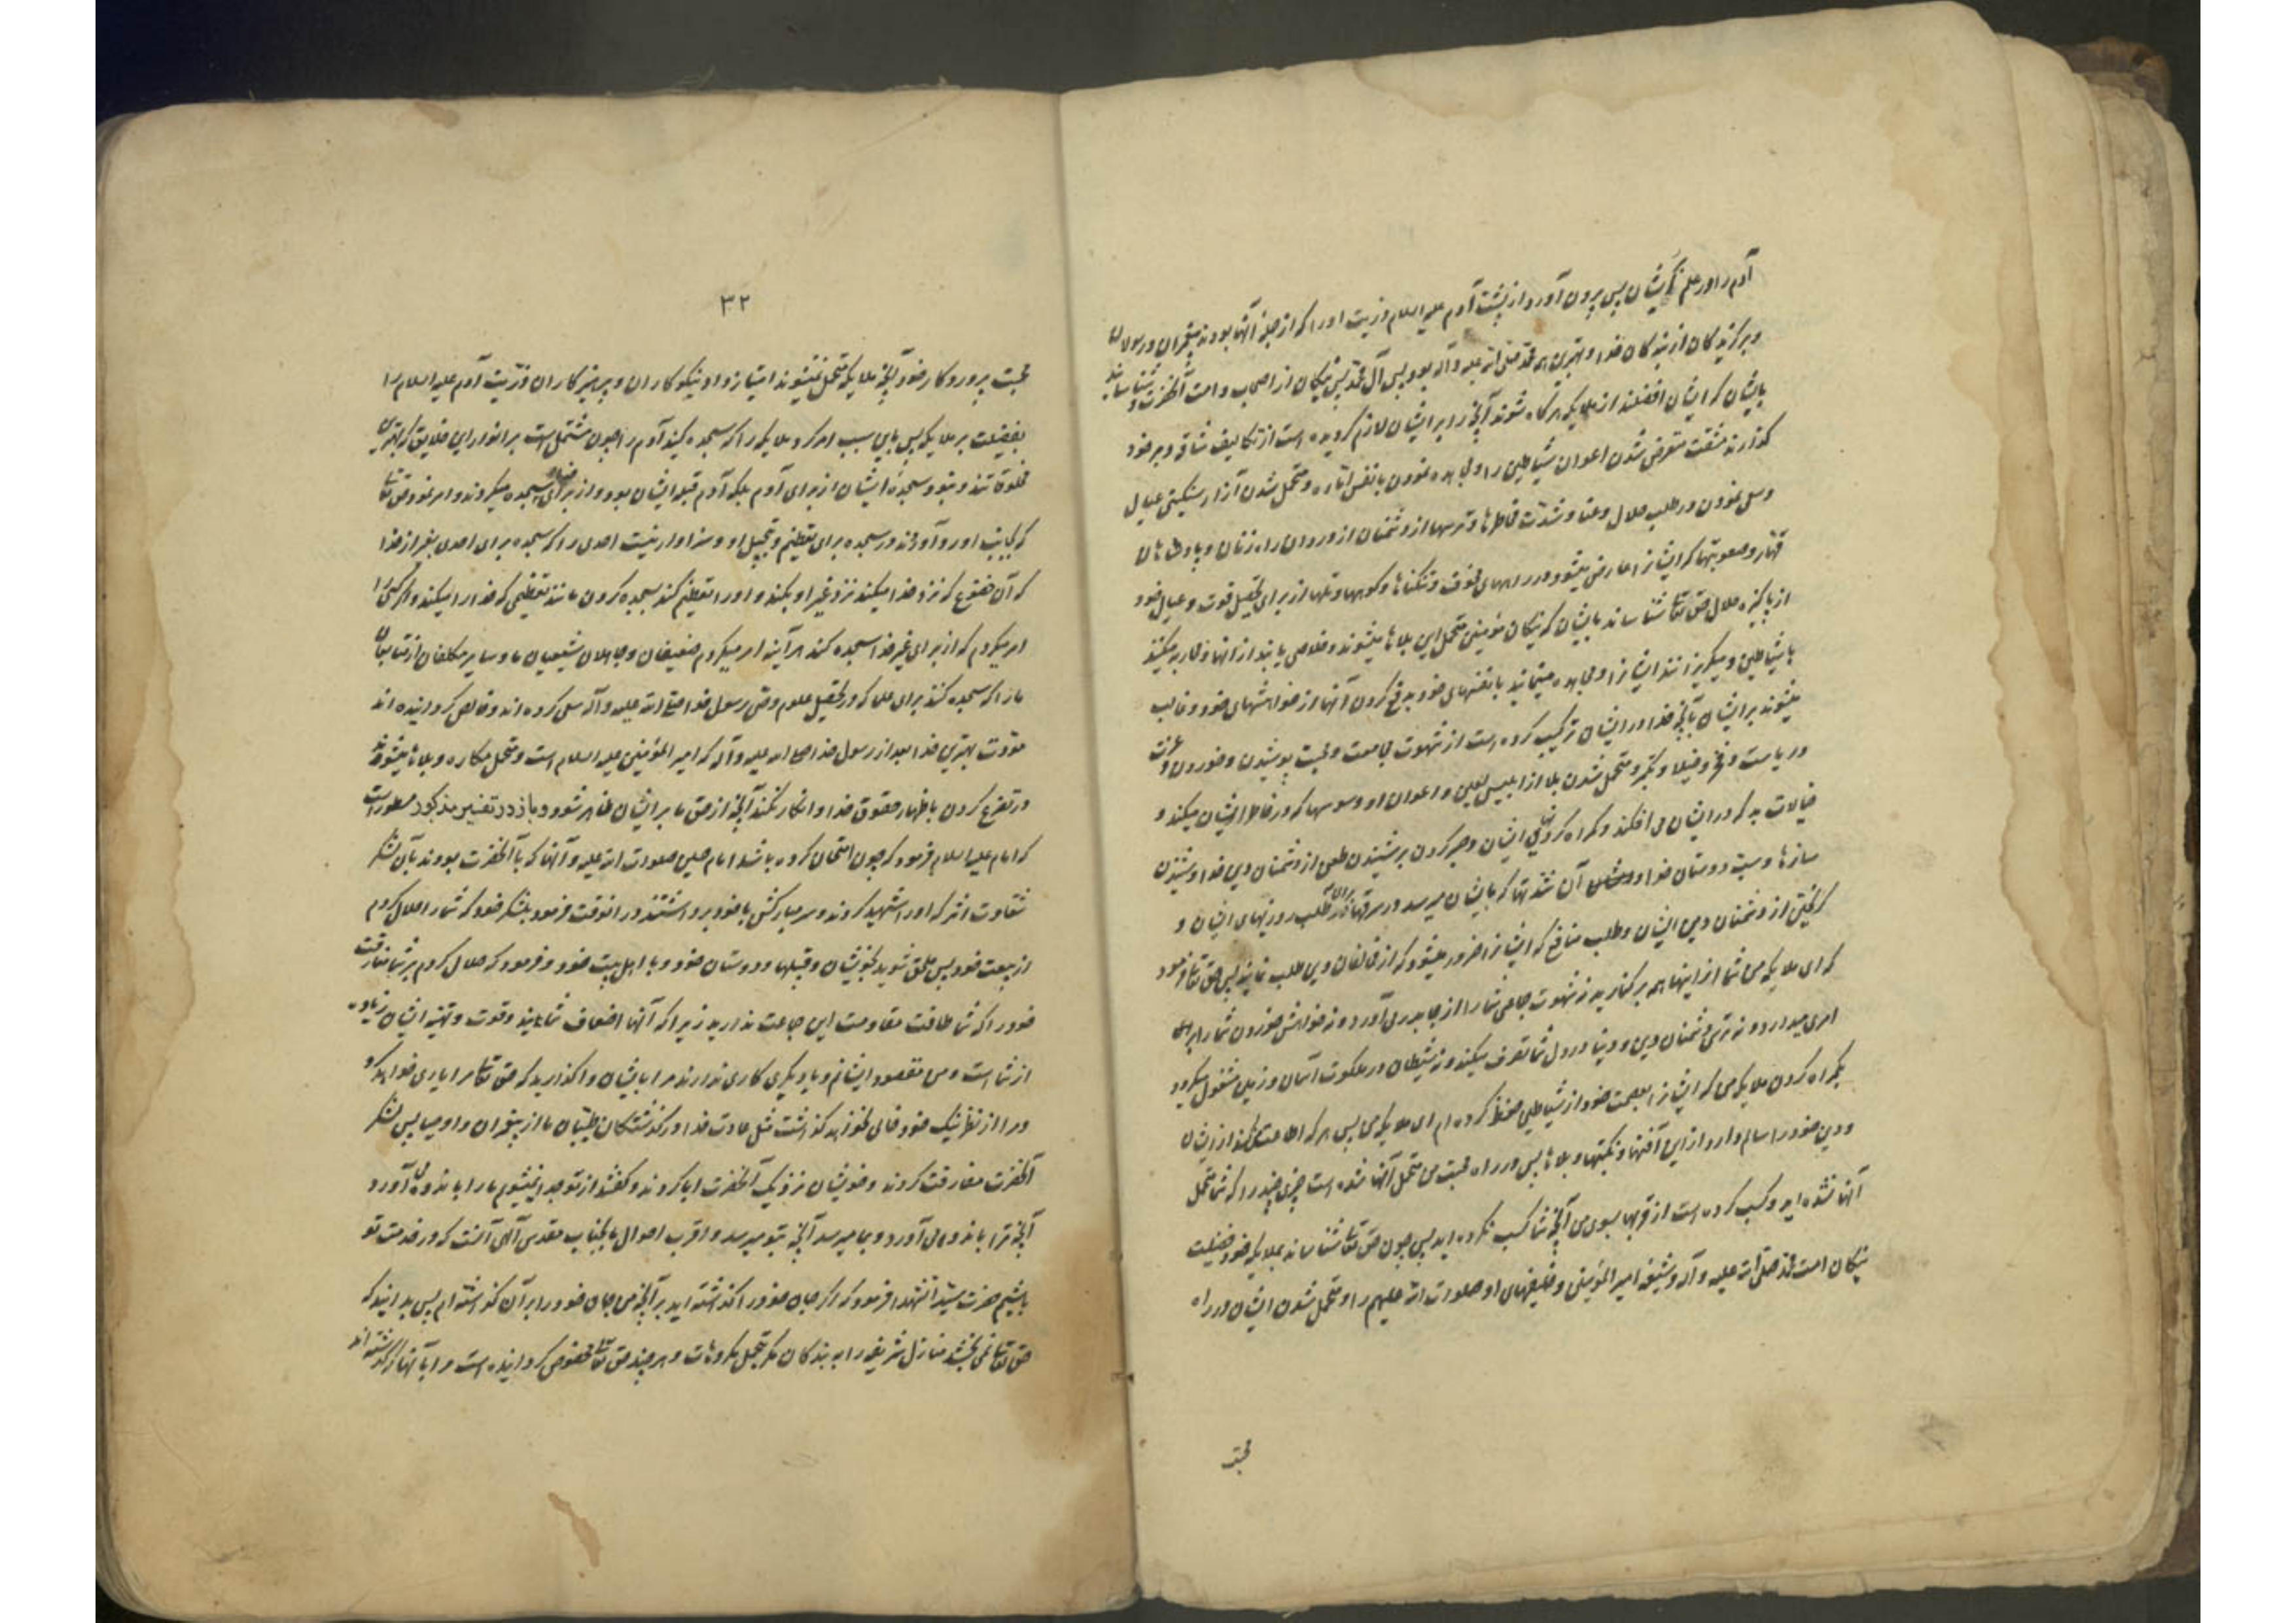 آدم را و علم ایشان پس بیرون آورد از پشت آدم علیه السلام ذریت او را که از جمله آنها بودند پیغمبران و رسولان
و برگزیدگان از بندگان خدا و بهترین همه محمد صلی الله علیه و آله بود پس آل محمد پس نیکان از اصحاب و امت آنحضرت و شناساند
بایشان که ایشان افضلند از ملایکه هرگاه شوند آنچه را بر ایشان لازم گردیده است از تکالیف شاقه و بر خود
گذارند مشقت متعرض شدن اعوان شیاطین را و مجاهده نمودن با نفس اماره و متحمل شدن آزار سنگینی عیال
و سعی نمودن در طلب حلال و عنا و شدت خاطرها و ترسها از دشمنان از دزدان راه زنان و پادشاهان
قهار و صعوبتها که ایشانرا عارض میشود در راههای خوف و تنکناها و کوهها و تلها از برای تحصیل قوت و عیال خود
از پاکیزه حلال حق تعالی شناساند بایشان که نیکان مؤمنین متحمل این بلاها میشوند و خلاصی یابند از آنها و محاربه میکنند
با شیاطین و میگریزانند ایشانرا و مجاهده مینمایند با نفسهای خود بدفع کردن آنها از خواهشهای خود و غالب
میشوند بر ایشان با آنچه خدا در ایشان ترکیب کرده است از شهوت مجامعت و محبت پوشیدن و خوردن و عزت
و ریاست و فخر و خیلا و تکبر و متحمل شدن بلا از ابلیس لعین و اعوان او و وسوسها که در خاطر ایشان میکند و
خیالات بد که در ایشان می افکند و گمراه کردنهای ایشان و صبر کردن بر شنیدن طعن از دشمنان دین خدا و شنیدن
سازها و سب دوستان خدا و آن شدتها که بایشان میرسد در سفرهای ایشان از برای طلب روزیهای ایشان و
گریختن از دشمنان دین ایشان و طلب منافع که ایشانرا ضرور میشود که از مخالفان دین طلب نمایند پس حق تعالی فرمود
که ای ملایکه من شما از اینها همه برکنارید نه شهوت جماع شما را از جا بدر می آورد و نه خواهش خوردن شما را بر
امری میدارد و نه ترس دشمنان دین و دنیا در دل شما تصرف میکند و نه شیطان در ملکوت آسمان و زمین مشغول میگردد
بگمراه کردن ملایکه من که ایشانرا بعصمت خود از شیاطین حفظ کرده ام ای ملایکه من پس هر که اطاعت من کند از ایشان
و دین خود را سالم دارد از این آفتها و نکبتها و بلاها پس در راه محبت من متحمل آنها شده است چیزی چند را که شما متحمل
آنها نشده اید و کسب کرده است از قربها بسوی من آنچه شما کسب نکرده اید پس چون حق تعالی شناساند بملایکه خود فضیلت
نیکان امت محمد صلی الله علیه و آله و شیعه امیر المؤمنین و خلیفهای او صلوات الله علیهم را و متحمل شدن ایشان در راه
محبت
۳۲
محبت پروردگار خود آنچه ملایکه متحمل نمیشوند امتیاز داد نیکوکاران و پرهیزکاران ذریت آدم علیه السلام را
بفضیلت بر ملایکه پس باین سبب امر کرد ملایکه را که سجده کنید آدم را چون مشتمل است بر انوار این خلایق که بهترین
مخلوقاتند و نبود سجدهٔ ایشان از برای آدم بلکه آدم قبله ایشان بود و از برای خدا سجده میکردند و امر نمود حق تعالی
که بجانب او رو آورند در سجده برای تعظیم و تبجیل او و سزاوار نیست احدی را که سجده برای احدی بغیر از خدا
که آن خضوع که نزد خدا میکند نزد غیر او بکند و او را تعظیم کند سجده کردن مانند تعظیمی که خدا را میکند و اگر کسی را
امر میکردم که از برای غیر خدا سجده کند هرآینه امر میکردم ضعیفان و جاهلان شیعیان ما و سایر مکلفان از متابعان
ما را که سجده کنند برای علما که در تحصیل علوم وصی رسول خدا صلی الله علیه و آله سعی کرده اند و خالص گردانیده اند
مودت بهترین خدا بعد از رسول خدا صلی الله علیه و آله که امیر المؤمنین علیه السلام است و متحمل مکاره و بلاها میشوند
در تصریح کردن باظهار حقوق خدا و انکار نکند آنچه از حق ما بر ایشان ظاهر شود و باز در تفسیر مذکور مسطور است
که امام علیه السلام فرمود که چون امتحان کرده باشد امام حسین صلوات الله علیه و آنها که با آنحضرت بودند بآن لشکر
شقاوت اثر که او را شهید کردند و سر مبارکش با خود برداشتند در آنوقت فرمود بلشکر خود که شما را حلال کردم
از بیعت خود پس ملحق شوید بخویشان و قبیلها و دوستان خود و با اهل بیت خود و فرمود که حلال کردم بر شما مفارقت
خود را که شما طاقت مقاومت این جماعت ندارید زیرا که آنها اضعاف شمایند و قوت و تهیه ایشان زیاده
از شما است و من مقصود ایشانم و با دیگری کاری ندارند مرا بایشان واگذارید که حق تعالی مرا یاری خواهد کرد
و مرا از نظر نیک خود خالی نخواهد گذاشت مثل عادت خدا در گذشتگان طیبان ما از پیغمبران و اوصیا پس لشکر
آنحضرت مفارقت کردند و خویشان نزدیک آنحضرت ابا کردند و گفتند از تو جدا نمیشویم ما را باندوه می آورد
آنچه ترا باندوه می آورد و بما میرسد آنچه بتو میرسد و اقرب احوال ما بجناب مقدس الهی آنست که در خدمت تو
باشیم حضرت سید الشهدا فرمود که اگر جان خود را گذاشته اید بر آنچه من جان خود را بر آن گذاشته ام پس بدانید که
حق تعالی نمی بخشد منازل شریفه را به بندگان مگر بتحمل مکروهات و هر چند حق تعالی مخصوص گردانیده است مرا با آنها که گذشته اند